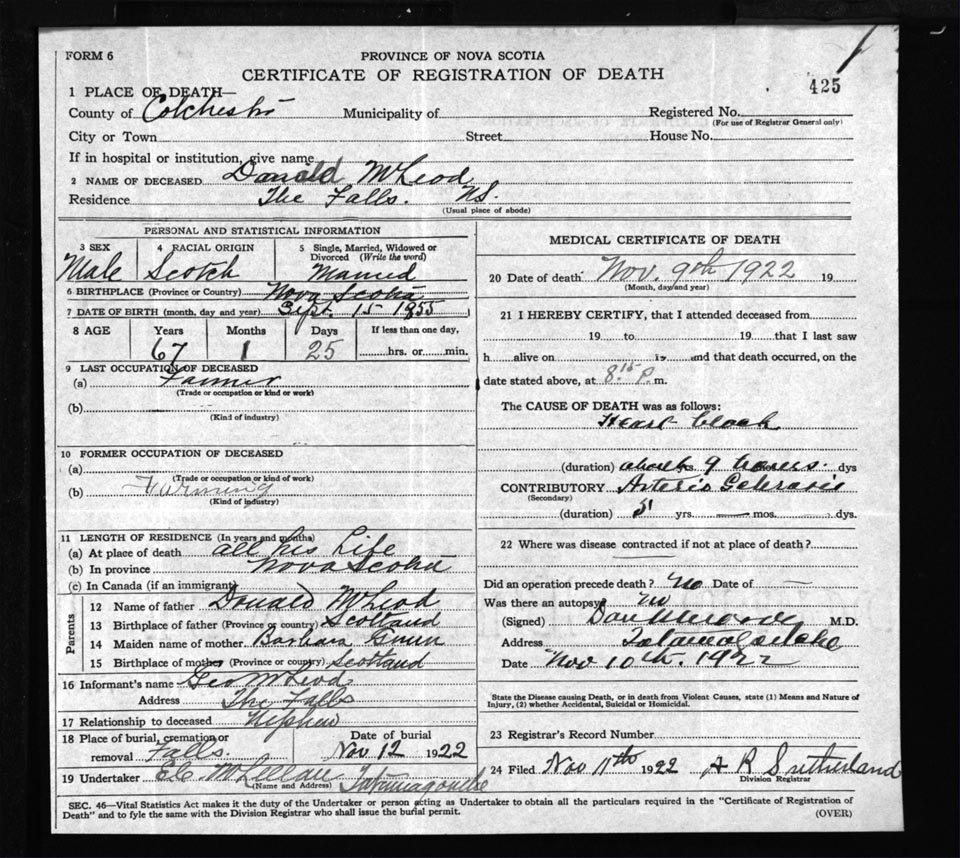 FORM 6
PROVINCE OF NOVA SCOTIA
CERTIFICATE OF REGISTRATION OF DEATH
425
1 PLACE OF DEATH—
County of Colchester Municipality of Registered No.
(For use of Registrar General only)
City or Town Street House No.
If in hospital or institution, give name
2 NAME OF DECEASED Donald McLeod
Residence The Falls. NS.
(Usual place of abode)
PERSONAL AND STATISTICAL INFORMATION
3 SEX 4 RACIAL ORIGIN 5 Single, Married, Widowed or Divorced (Write the word)
Male Scotch Married
6 BIRTHPLACE (Province or Country) Nova Scotia
7 DATE OF BIRTH (month, day and year) Sept. 15 1855
8 AGE Years Months Days If less than one day,
67 1 25 hrs. or min.
9 LAST OCCUPATION OF DECEASED
(a) Farmer
(Trade or occupation or kind or work)
(b)
(Kind of industry)
10 FORMER OCCUPATION OF DECEASED
(a)
(Trade or occupation or kind of work)
(b) Farming
(Kind of industry)
11 LENGTH OF RESIDENCE (In years and months)
(a) At place of death all his Life
(b) In province Nova Scotia
(c) In Canada (if an immigrant)
Parents
12 Name of father Donald McLeod
13 Birthplace of father (Province or country) Scotland
14 Maiden name of mother Barbara Gunn
15 Birthplace of mother (Province or country) Scotland
16 Informant's name Geo McLeod
Address The Falls
17 Relationship to deceased Nephew
18 Place of burial, cremation or removal Falls. Date of burial Nov 12 1922
19 Undertaker McLellan Tatamagouche
(Name and Address)
MEDICAL CERTIFICATE OF DEATH
20 Date of death Nov. 9th 1922 19
(Month, day and year)
21 I HEREBY CERTIFY, that I attended deceased from
19 to 19 that I last saw
h alive on 19 and that death occurred, on the
date stated above, at 8.15 P. m.
The CAUSE OF DEATH was as follows:
Heart block
(duration) about 9 hours dys
CONTRIBUTORY Arterio Sclerosis
(Secondary)
(duration) 5 yrs. — mos. dys.
22 Where was disease contracted if not at place of death?
Did an operation precede death? no Date of —
Was there an autopsy no
(Signed) Dan Murray M.D.
Address Tatamagouche
Date Nov 10th. 1922
State the Disease causing Death, or in death from Violent Causes, state (1) Means and Nature of
Injury, (2) whether Accidental, Suicidal or Homicidal.
23 Registrar's Record Number
24 Filed Nov 11th 1922 A R Sutherland
Division Registrar
SEC. 46—Vital Statistics Act makes it the duty of the Undertaker or person acting as Undertaker to obtain all the particulars required in the "Certificate of Registration of
Death" and to fyle the same with the Division Registrar who shall issue the burial permit.
(OVER)